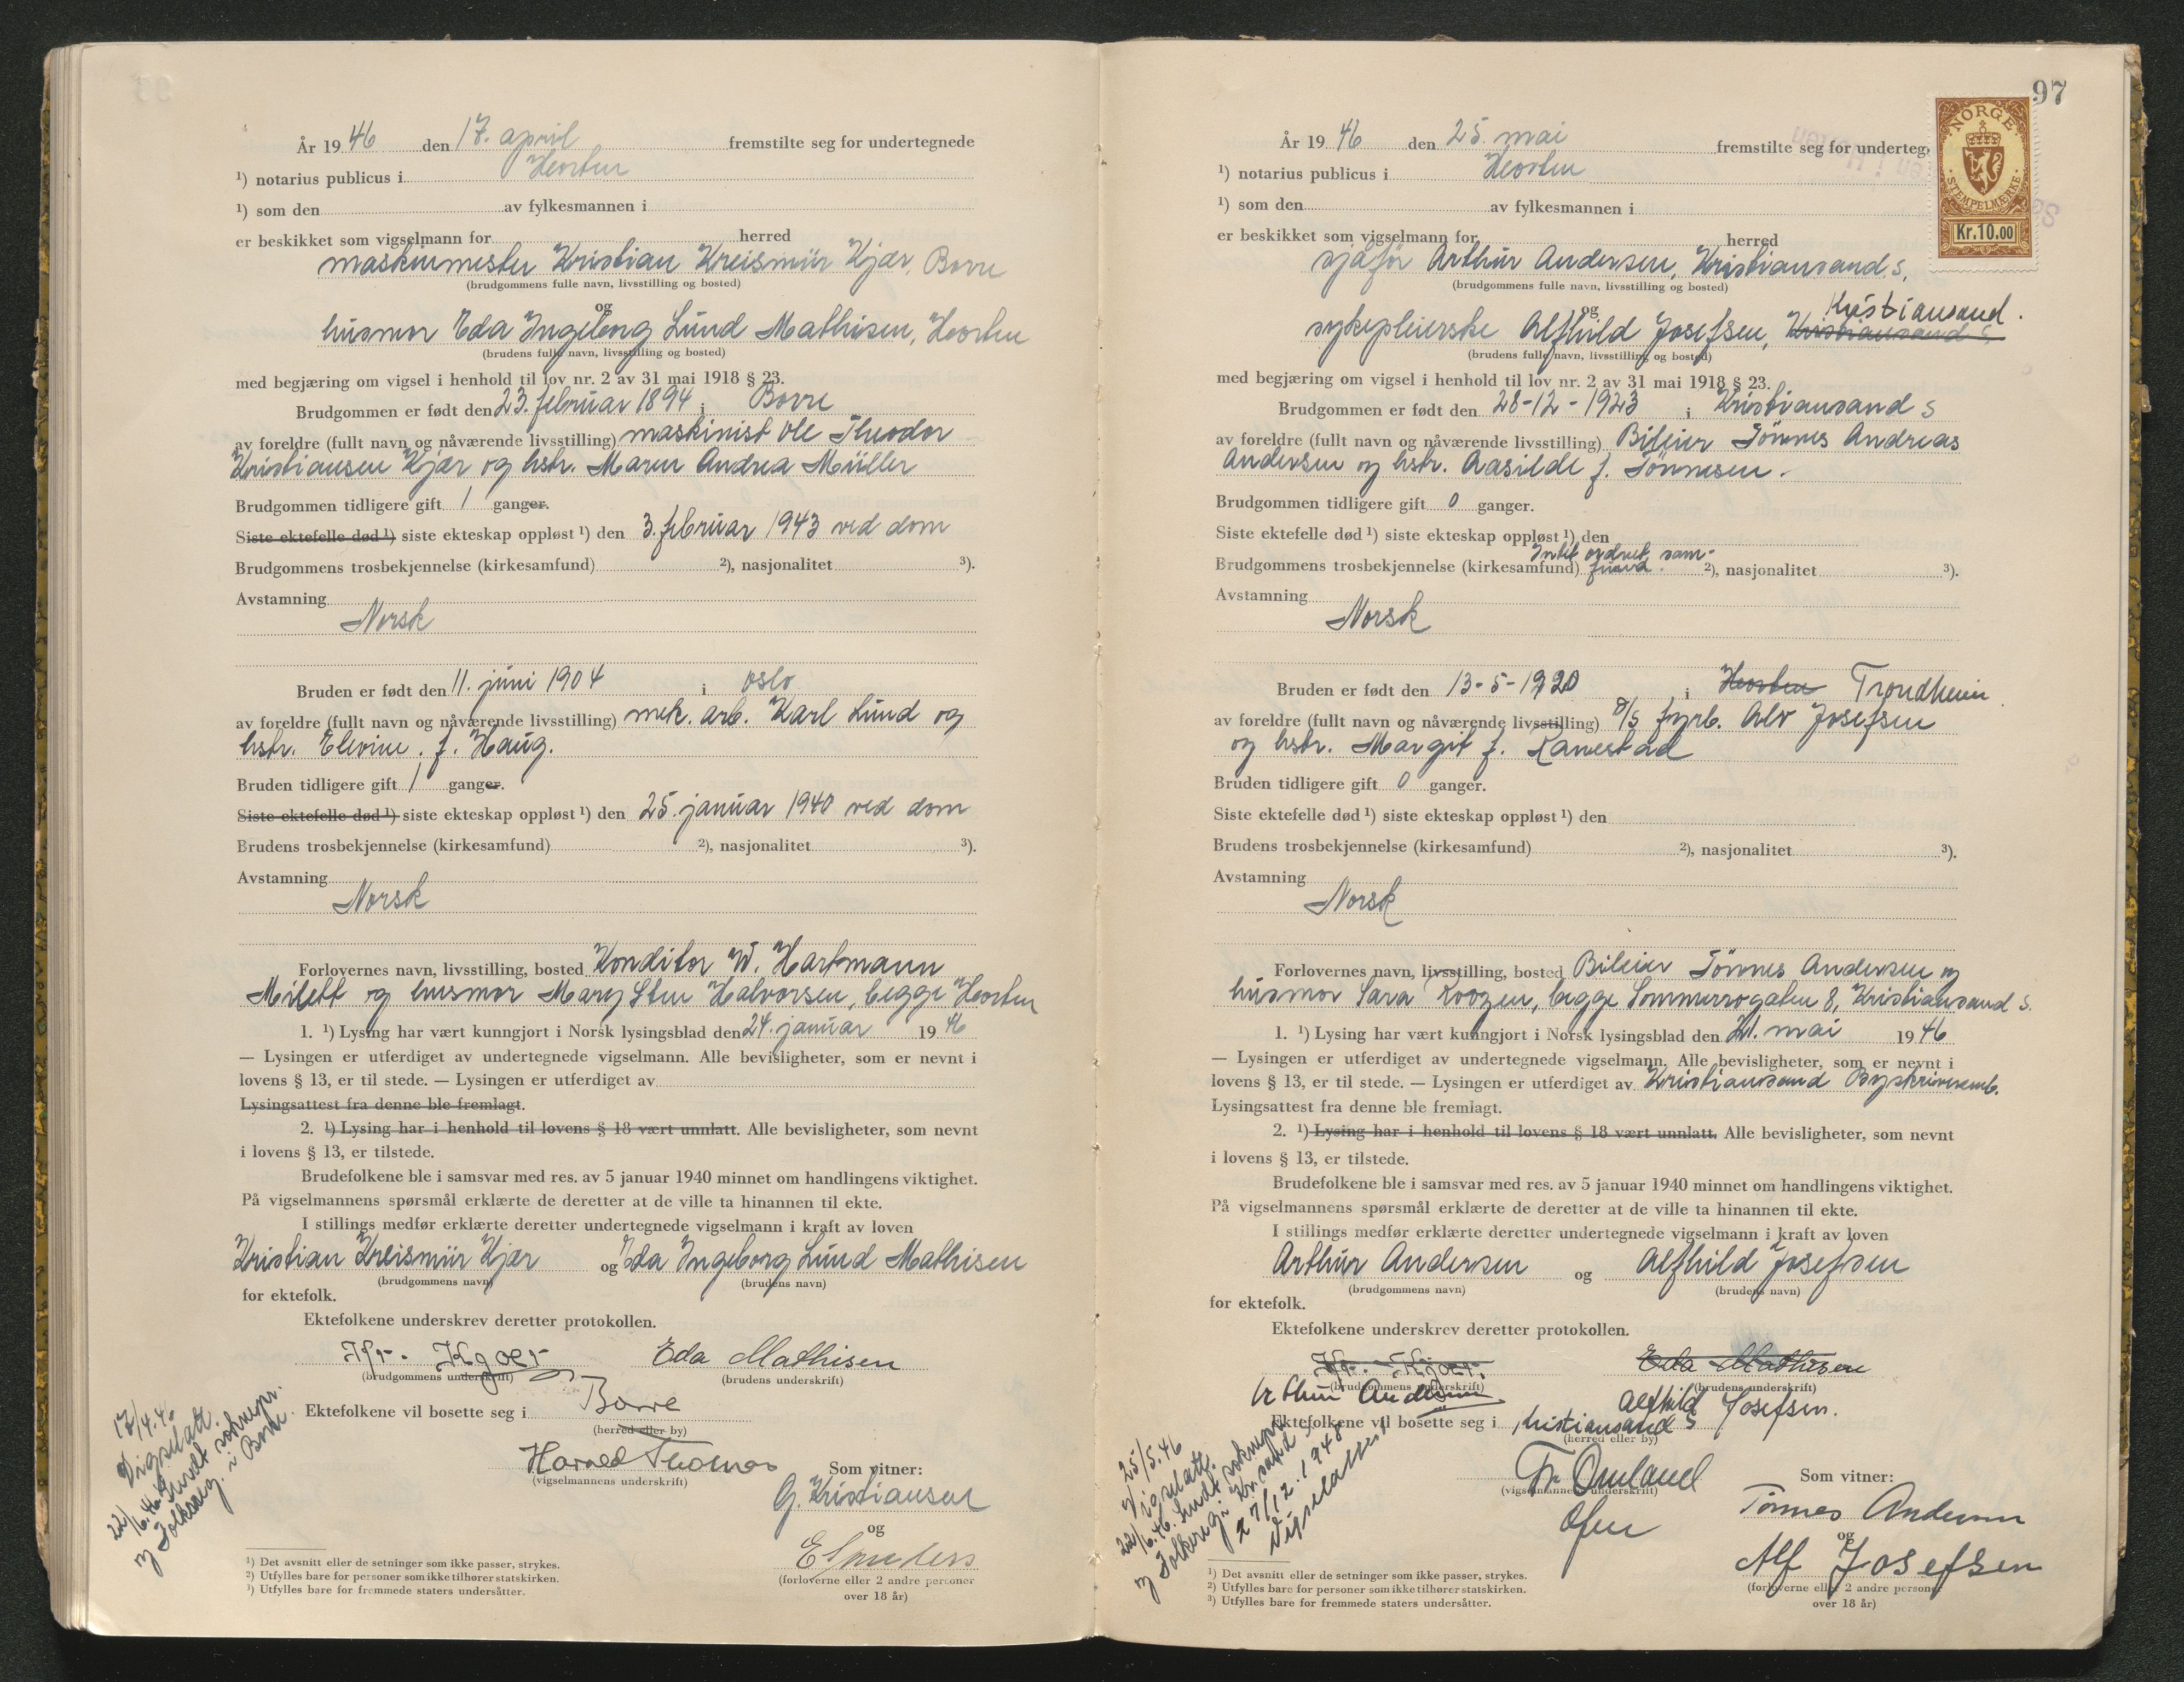 År 1946 den 17. april fremstilte seg for undertegnede
¹) notarius publicus i Horten
¹) som den av fylkesmannen i
er beskikket som vigselmann for herred
maskinmester Kristian Kreismür Kjær, Borre
(brudgommens fulle navn, livsstilling og bosted)
og
husmor Eda Ingeborg Lund Mathisen, Horten
(brudens fulle navn, livsstilling og bosted)
med begjæring om vigsel i henhold til lov nr. 2 av 31 mai 1918 § 23.
Brudgommen er født den 23. februar 1894 i Borre
av foreldre (fullt navn og nåværende livsstilling) maskinist Ole Theodor
Kristiansen Kjær og hstr. Maren Andrea Müller
Brudgommen tidligere gift 1 ganger.
Siste ektefelle død ¹) siste ekteskap oppløst ¹) den 3. februar 1943 ved dom
Brudgommens trosbekjennelse (kirkesamfund) ²), nasjonalitet ³).
Avstamning
Norsk
Bruden er født den 11. juni 1904 i Oslo
av foreldre (fullt navn og nåværende livsstilling) mek. arb. Karl Lund og
hstr. Elevine f. Haug.
Bruden tidligere gift 1 ganger.
Siste ektefelle død ¹) siste ekteskap oppløst ¹) den 25. januar 1940 ved dom
Brudens trosbekjennelse (kirkesamfund) ²), nasjonalitet ³).
Avstamning
Norsk
Forlovernes navn, livsstilling, bosted Konditor W. Hartmann
Milett og husmor Mary Sten Halvorsen, begge Horten
1. ¹) Lysing har vært kunngjort i Norsk lysingsblad den 24. januar 1946
— Lysingen er utferdiget av undertegnede vigselmann. Alle bevisligheter, som er nevnt i
lovens § 13, er til stede. — Lysingen er utferdiget av
Lysingsattest fra denne ble fremlagt.
2. ¹) Lysing har i henhold til lovens § 18 vært unnlatt. Alle bevisligheter, som nevnt
i lovens § 13, er tilstede.
Brudefolkene ble i samsvar med res. av 5 januar 1940 minnet om handlingens viktighet.
På vigselmannens spørsmål erklærte de deretter at de ville ta hinannen til ekte.
I stillings medfør erklærte deretter undertegnede vigselmann i kraft av loven
Kristian Kreismür Kjær og Eda Ingeborg Lund Mathisen
(brudgommens navn) (brudens navn)
for ektefolk.
Ektefolkene underskrev deretter protokollen.
Kr. Kjær Eda Mathisen
(brudgommens underskrift) (brudens underskrift)
Ektefolkene vil bosette seg i Borre
(herred eller by)
Harald Thomas
(vigselmannens underskrift) Som vitner:
G. Kristiansen
og
(forloverne eller 2 andre personer
over 18 år)
17/4.46
Vigselatt.
22/6.46. sendt soknepr.
og Folkereg. i Borre.
¹) Det avsnitt eller de setninger som ikke passer, strykes.
²) Utfylles bare for personer som ikke tilhører statskirken.
³) Utfylles bare for fremmede staters undersåtter.
97
NORGE
STEMPELMERKE
Kr.10.00
År 1946 den 25 mai fremstilte seg for underteg
¹) notarius publicus i Horten
¹) som den av fylkesmannen i
er beskikket som vigselmann for herred
sjåfør Arthur Andersen, Kristiansand S,
(brudgommens fulle navn, livsstilling og bosted)
og
Kristiansand.
sykepleierske Alfhild Josefsen, Kristiansand S,
(brudens fulle navn, livsstilling og bosted)
med begjæring om vigsel i henhold til lov nr. 2 av 31 mai 1918 § 23.
Brudgommen er født den 28-12-1923 i Kristiansand S
av foreldre (fullt navn og nåværende livsstilling) Bileier Tønnes Andreas
Andersen og hstr. Aasilde f. Tønnesen.
Brudgommen tidligere gift 0 ganger.
Siste ektefelle død ¹) siste ekteskap oppløst ¹) den
Intet ordnet sam-
Brudgommens trosbekjennelse (kirkesamfund) fund. ²), nasjonalitet ³).
Avstamning
Norsk
Bruden er født den 13-5-1920 i Horten Trondheim
av foreldre (fullt navn og nåværende livsstilling) fyrb. Alv Josefsen
og hstr. Margit f. Ranestad
Bruden tidligere gift 0 ganger.
Siste ektefelle død ¹) siste ekteskap oppløst ¹) den
Brudens trosbekjennelse (kirkesamfund) ²), nasjonalitet ³).
Avstamning
Norsk
Forlovernes navn, livsstilling, bosted Bileier Tønnes Andersen og
husmor Sara Roozen, begge Sommerrogaten 8, Kristiansand S.
1. ¹) Lysing har vært kunngjort i Norsk lysingsblad den 21. mai 1946
— Lysingen er utferdiget av undertegnede vigselmann. Alle bevisligheter, som er nevnt i
lovens § 13, er til stede. — Lysingen er utferdiget av Kristiansand Byskriveremb.
Lysingsattest fra denne ble fremlagt.
2. ¹) Lysing har i henhold til lovens § 18 vært unnlatt. Alle bevisligheter, som nevnt
i lovens § 13, er tilstede.
Brudefolkene ble i samsvar med res. av 5 januar 1940 minnet om handlingens viktighet.
På vigselmannens spørsmål erklærte de deretter at de ville ta hinannen til ekte.
I stillings medfør erklærte deretter undertegnede vigselmann i kraft av loven
Arthur Andersen og Alfhild Josefsen
(brudgommens navn) (brudens navn)
for ektefolk.
Ektefolkene underskrev deretter protokollen.
Kr. Kjær Eda Mathisen
(brudgommens underskrift) (brudens underskrift)
Arthur Andersen Alfhild Josefsen.
Ektefolkene vil bosette seg i Kristiansand S
(herred eller by)
Fr. Omland
(vigselmannens underskrift) Som vitner:
Tønnes Andersen
og
Alf Josefsen
(forloverne eller 2 andre personer
over 18 år)
25/5.46
Vigselatt.
22/6.46. sendt soknepr.
og Folkereg. i Kr.sand S
27/12.1948
Vigselattest
¹) Det avsnitt eller de setninger som ikke passer, strykes.
²) Utfylles bare for personer som ikke tilhører statskirken.
³) Utfylles bare for fremmede staters undersåtter.